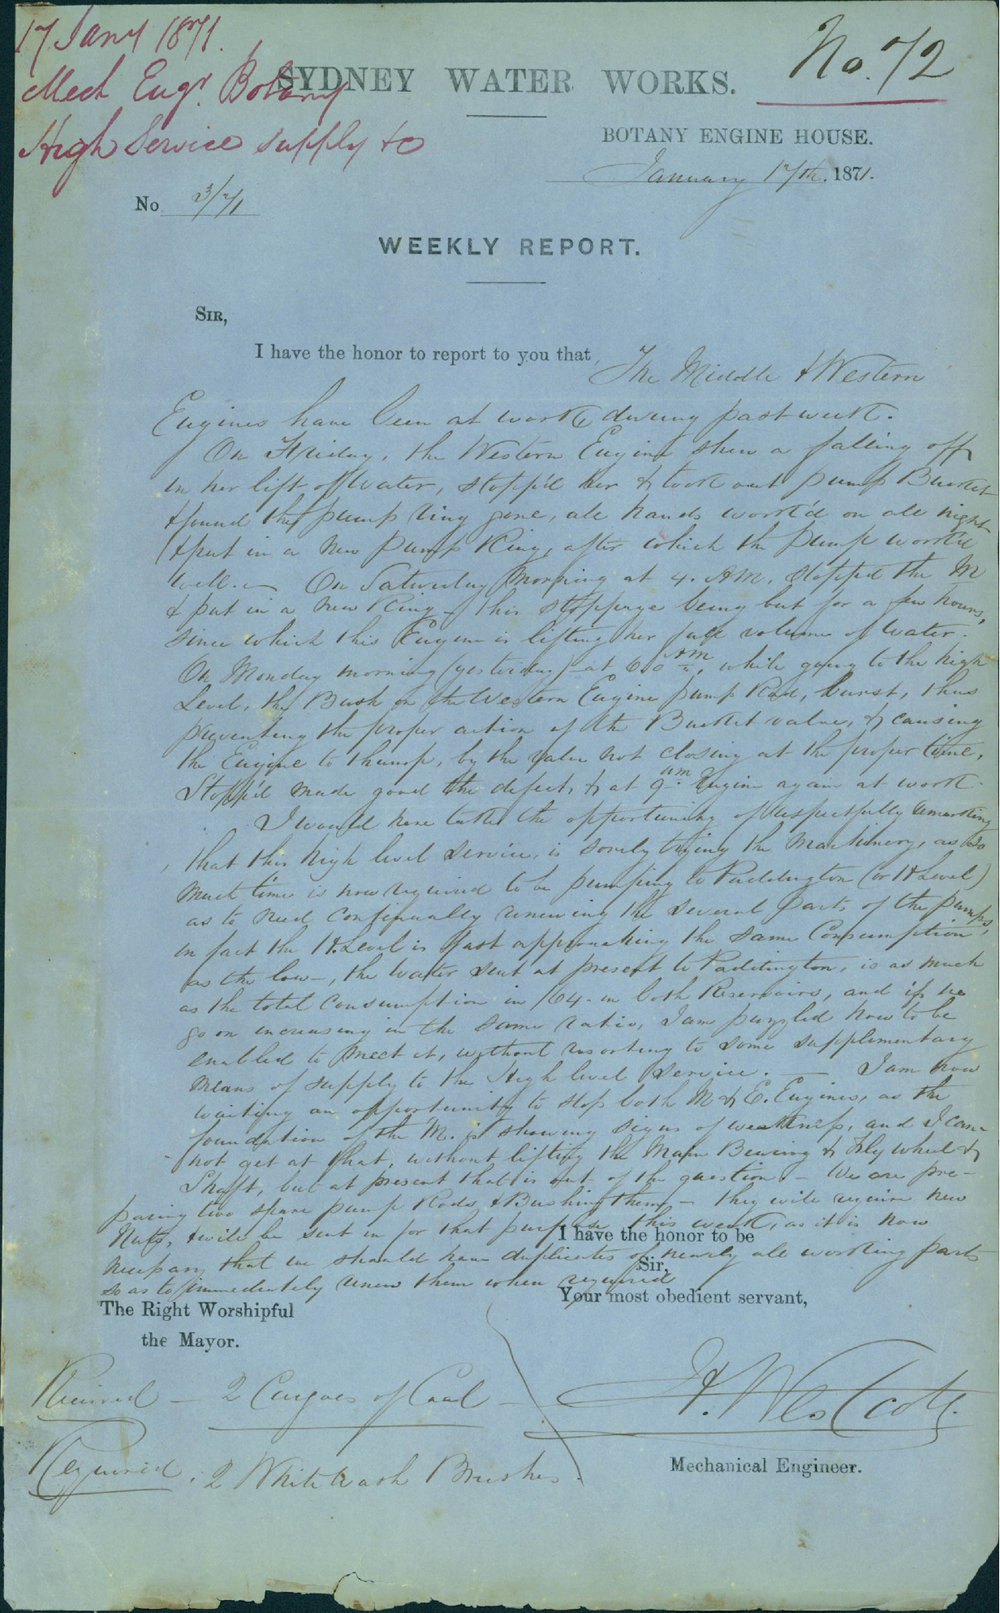 17 Jany 1871.
Mech Engr. Botany
High Service supply to
No. 72
SYDNEY WATER WORKS.
BOTANY ENGINE HOUSE.
January 17th. 1871.
No 3/71
WEEKLY REPORT.
SIR,
I have the honor to report to you that The Middle & Western
Engines have been at work during past week.
On Friday, the Western Engine shew a falling off
in her lift of water, stopp'd her & took out pump Bucket
& found the pump ring gone, all hands work'd on all night
& put in a new Pump Ring, after which the pump work'd
well. — On Saturday morning at 4. AM. Stopp'd the M
& put in a new Ring — this stoppage being but for a few hours,
since which this Engine is lifting her full volume of water.
On Monday morning (yesterday) at 6.0 AM, while going to the high
Level, the Bush on the Western Engine pump Rod, burst, thus
preventing the proper action of the Bucket valve, & causing
the Engine to thump, by the valve not closing at the proper time,
Stopp'd made good the defect, & at 9. Engine again at work.
I would here take the opportunity of respectfully remarking
that this high level service, is sorely trying the Machinery, as so
much time is now required to be pumping to Paddington (or H Level)
as to need continually renewing the several parts of the pumps,
in fact the H. Level is fast approaching the same Consumption
as the low —, the water sent at present to Paddington, is as much
as the total consumption in /64 — in both Reservoirs, and if we
go on increasing in the same ratio, I am puzzled how to be
enabled to meet it, without resorting to some supplimentary
means of supply to the High level Service. — I am now
waiting an opportunity to stop both M & E. Engines, as the
foundation of the M. is showing signs of weakness, and I can-
not get at that, without lifting the Main Bearing & Fly wheel &
Shafft, but at present that is out of the question — We are pre-
paring two spare pump Rods & Bushing them — they will require new
Nuts, & will be sent in for that purpose this week, as it is now
necessary that we should have duplicates of nearly all working parts
so as to immediately renew them when required
I have the honor to be
Sir,
Your most obedient servant,
The Right Worshipful
the Mayor.
Received — 2 Cargoes of Coal —
H. Westcott.
Required. 2 White Wash Brushes.
Mechanical Engineer.